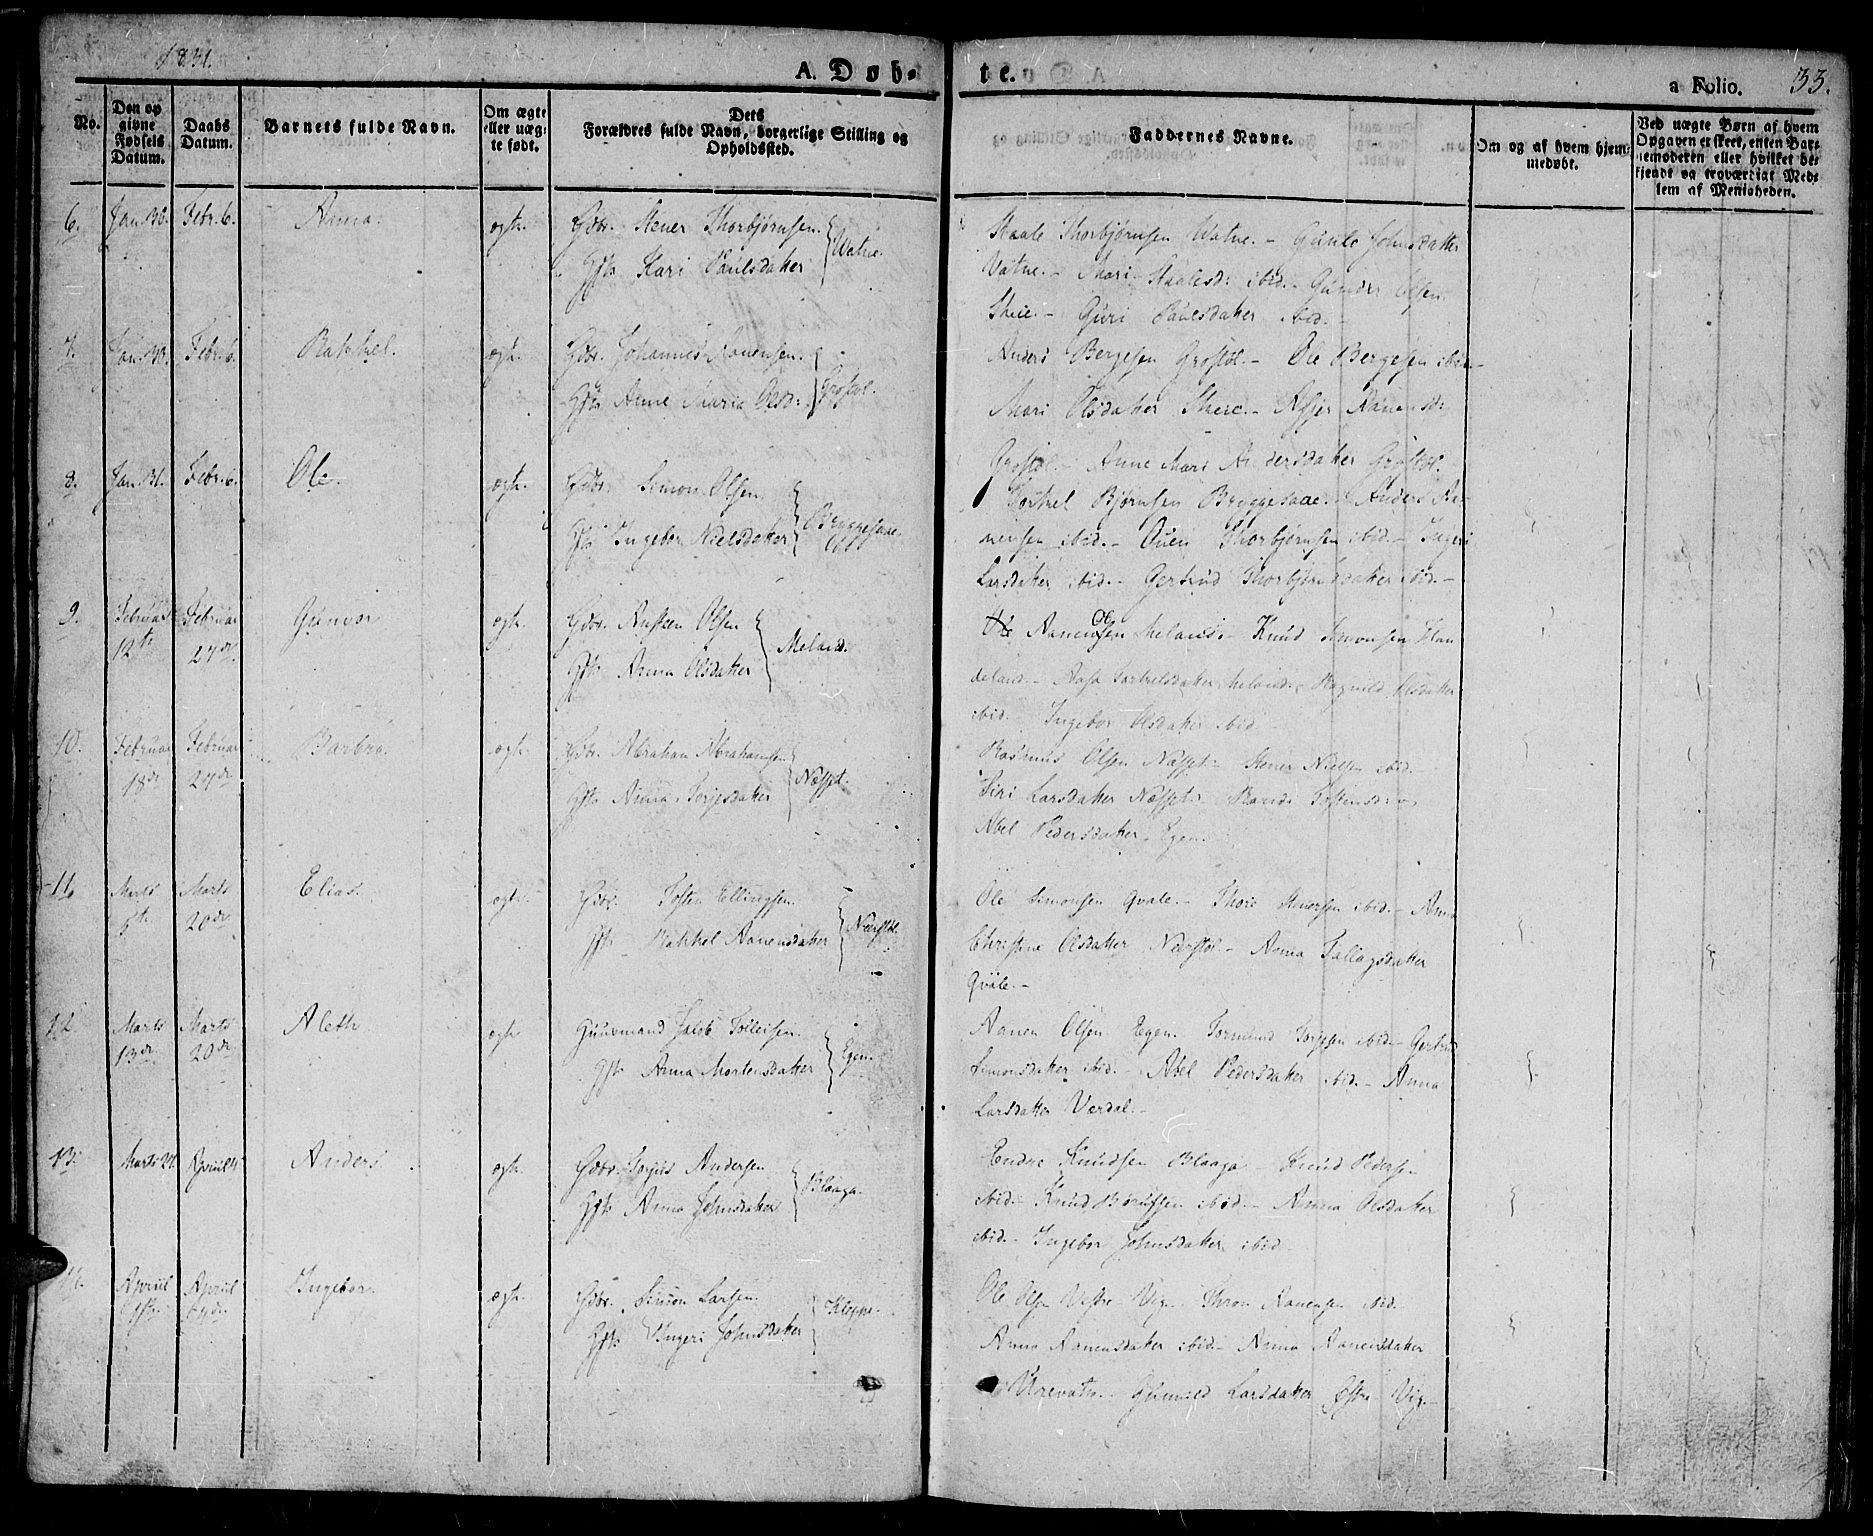 1831.
A. Døb-
te.
a Folio. 33.
No.
Den op
givne
Fødsels
Datum.
Daabs
Datum.
Barnets fulde Navn.
Om ægte
eller uæg-
te født.
Dets
Forældres fulde Navn, borgerlige Stilling og
Opholdssted.
Faddernes Navne.
Om og af hvem hjem-
medøbt.
Ved uægte Børn af hvem
Opgaven er skeet, enten Bar-
nemoderen eller hvilket be-
kjendt og troværdigt Med-
lem af Menigheden.
6. Jan. 30. Febr. 6. Anna. ægte. Gdbr. Stener Thorbjørnsen.
Gfts Kari Paulsdatter } Watne.
Staale Thorbjørnsen Watne. - Gunle Johnsdatter
Vatne. - Mari Staalesd: ibid. - Gunder Olsen
Skeie. - Guri Paulsdatter ibid. -
7. Jan. 30. Febr. 6. Rakkel. ægte. Gdbr. Johannes Aanensen.
Gfts Anne Maria Olsd: } Grostøl.
Anders Bergesen Grostøl. - Ole Bergesen ibid. -
Mari Olsdatter Skeie. - Asgjer Aanensd:
Grostøl. - Anne Mari Andersdatter Grostøl.
8. Jan. 31. Febr. 6. Ole. ægte. Gdbr. Simon Olsen
Gfts Ingebor Nielsdatter } Bryggesaae.
Tortkel Bjørnsen Bryggesaae. - Anders Aa-
nensen ibid. - Ouen Thorbjørnsen ibid. - Ingeri
Larsdatter ibid. - Gertrud Thorbjørnsdatter ibid. -
9. Februar 12te Februar 27de Gunvor ægte. Gdbr. Austen Olsen
Gfts Anna Olsdatter } Meland.
Aanen Olsen Meland. - Knud Simonsen Han
deland. - Aase Tortkelsdatter Meland. - Ragnild Olsdatter
ibid. Ingebor Olsdatter ibid
10. Februar 18de Februar 27de Barbra. ægte. Gdbr. Abraham Abrahamsen
Gfts Anna Torjesdatter } Næsset.
Rasmus Olsen Næsset. - Stener Nielsen ibid.
Siri Larsdatter Næsset. Randi Tostensd:
Abel Pedersdatter Egen.
11. Marts 5te Marts 20de Elias. ægte. Gdbr. Tosten Ellingsen.
Gfts Rakkel Aanensdatter } Nedrstøl
Ole Simonsen Qvale. - Thore Stenersen ibid. - Anna
Christine Olsdatter Nedrstøl. - Anna Tallagsdatter
Qvale. -
12. Marts 13de Marts 20de Aleth ægte Guuvmand Jacob Tolleifsen.
Gfts Anna Mortensdatter } Egen.
Aanen Olsen Egen. Tormund Torjesen ibid. - Gertrud
Simonsdatter ibid. - Abel Pedersdatter ibid. - Anna
Larsdatter Værdal. -
13. Marts 27. Apriil 4 Anders ægte. Gdbr. Torjus Andersen
Gfts Anna Johnsdatter } Blaaga.
Endre Knudsen Blaaga - Knud Pedersen
ibid. - Knud ibid. - Anna Olsdatter
ibid. - Ingebor Johnsdatter ibid
Apriil Apriil Ingebor. ægte. Gdbr. Simon Larsen.
Gfts Ingeri Johnsdatter } Kleppe.
Ole Olsen Vestre Vig. Thron Aanensen ibid.
Anna Aanensdatter ibid. - Anna Aanensdatter
Urevatn. - Gunnild Larsdatter Østre Vig. -